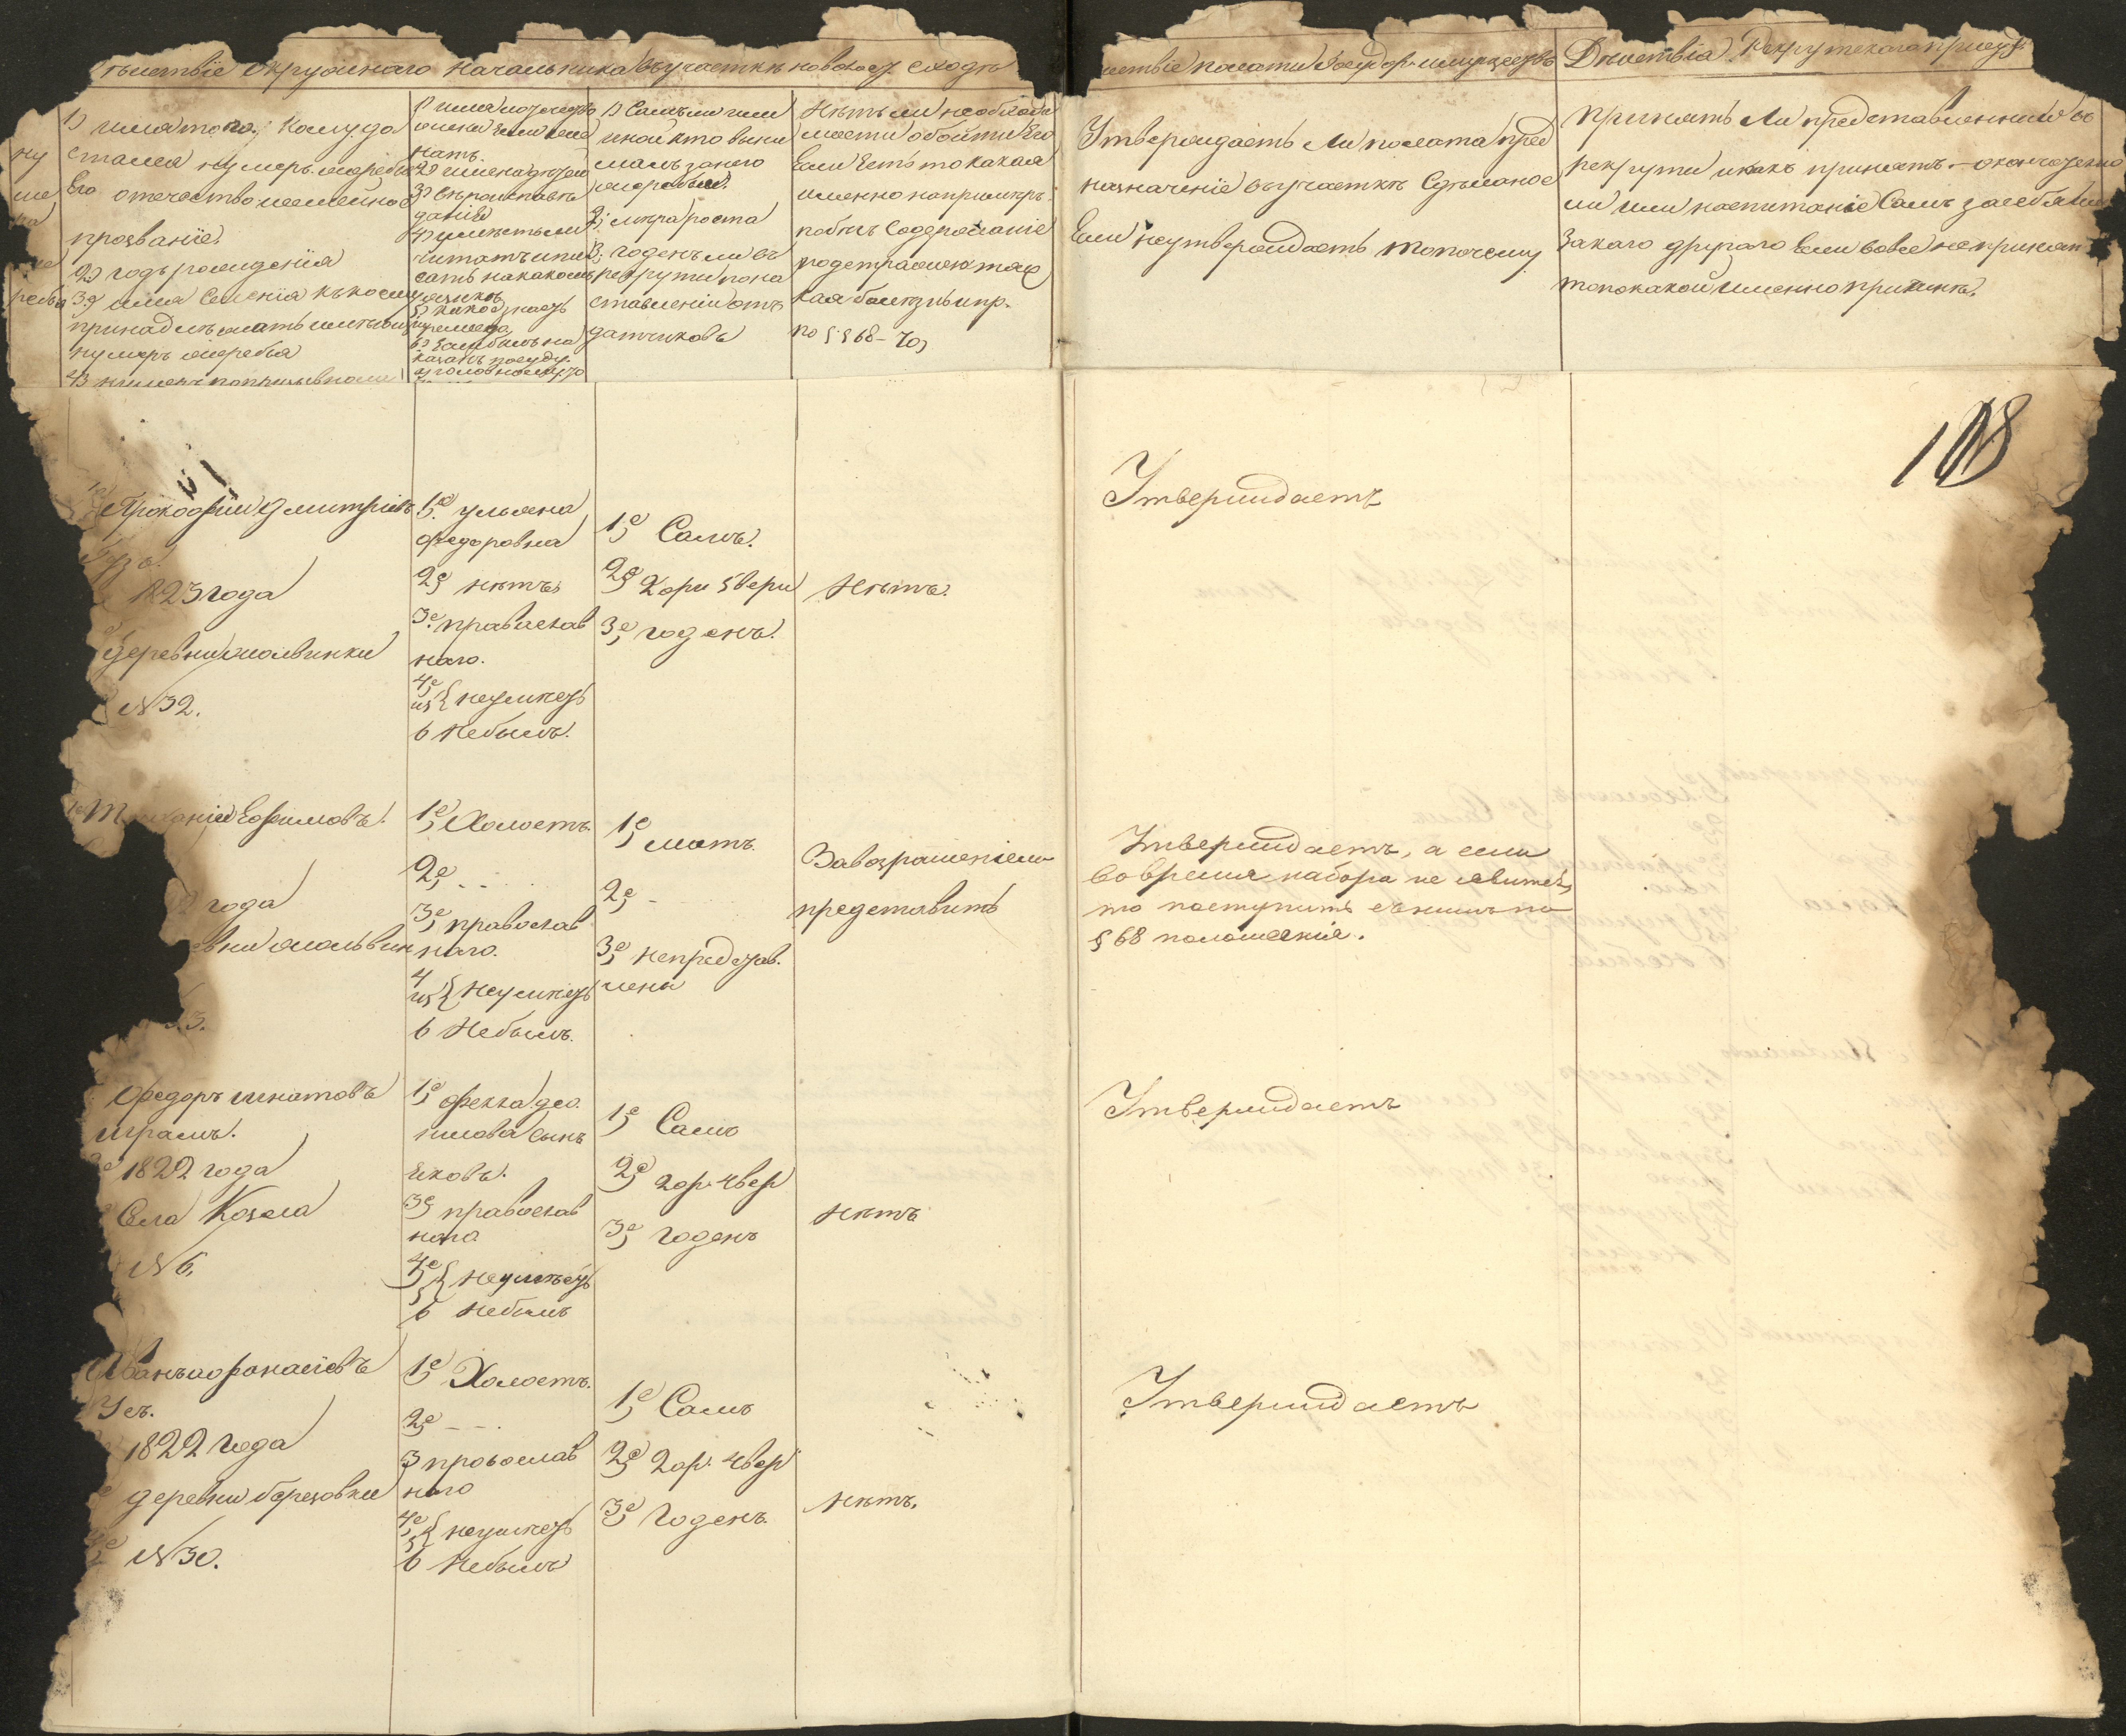 Окружнаго Начальника въ участкѣ на волост. сходѣ
1) имя того, кому до
стался нумеръ жеребья
Его отечество и семейное
прозваніе.
2) годъ рожденія
3) имя Селенія къ коему
принадлежать
нумеръ жеребья
2) имена дѣтей
3) вѣроисповѣ
данія
4) умѣетъ ли
читать и пи
сать на какомъ
языкѣ
5) какое знаетъ
ремесло
6) не былъ ли на
казанъ по суду
1) Самъ ли или
иной кто выни
малъ за него
жеребьи.
2; мѣра роста
3; годенъ ли въ
рекруты по на
ставленію отъ
датчиковъ
Нѣтъ ли необходи
мости обойти Его
Если Есть то какая
именно напримѣръ:
побѣгъ Содержаніе
подстражею тяж
кая болезнь и пр.
по § § 68 - 70,
Палаты Государ. имуществъ
Утверждаетъ ли палата пред
назначеніе въ участкѣ Сдѣланое
Если неутверждаетъ то почему
Дѣйствія Рекрутскаго присут.
Принятъ Ли представленный въ
рекруты и какъ принятъ. - окончательно
ли или на испытаніе Самъ за себя или
За каго другаго Если вовсе не принятъ
то по какой именно причинѣ.
108
Прокофій Дмитріевъ
1823 года
Деревни
№ 32.
1е ульяна
федоровна
2е нѣтъ
3е православ
наго.
4е
и5 { неумѣетъ
6 Небылъ.
1е Самъ.
2е 2 ари 5 вери
3е годенъ.
Нѣтъ.
Утверждаетъ
Ефимовъ.
года
1е Холостъ.
2е - - -
3е православ
наго.
4
и5 { Неумѣетъ
6 Небылъ.
1е мать.
2е -
3е непредстав.
лена
За возращеніемъ
представить
Утверждаетъ, а если
во время набора не явится,
то поступить съ нимъ по
§ 68 положенія.
Федоръ Игнатовъ
1822 года
Села Козела
№ 6.
1е Фекла
сынъ
Яковъ.
3е православ
наго
4е
5 { Неумѣетъ
6 небылъ
1е Самъ
2е 2 ар. 4 вер
3е Годенъ
Нѣтъ
Утверждаетъ
Иванъ Афанасіевъ
Усъ.
1822 Года
деревни березовки
№ 30.
1е Холостъ.
2е - - -
3 православ
наго
4е
5 { неумѣетъ
6 Небылъ
1е Самъ
2е 2 ар. 4 вер
3е Годенъ.
Нѣтъ.
Утверждаетъ